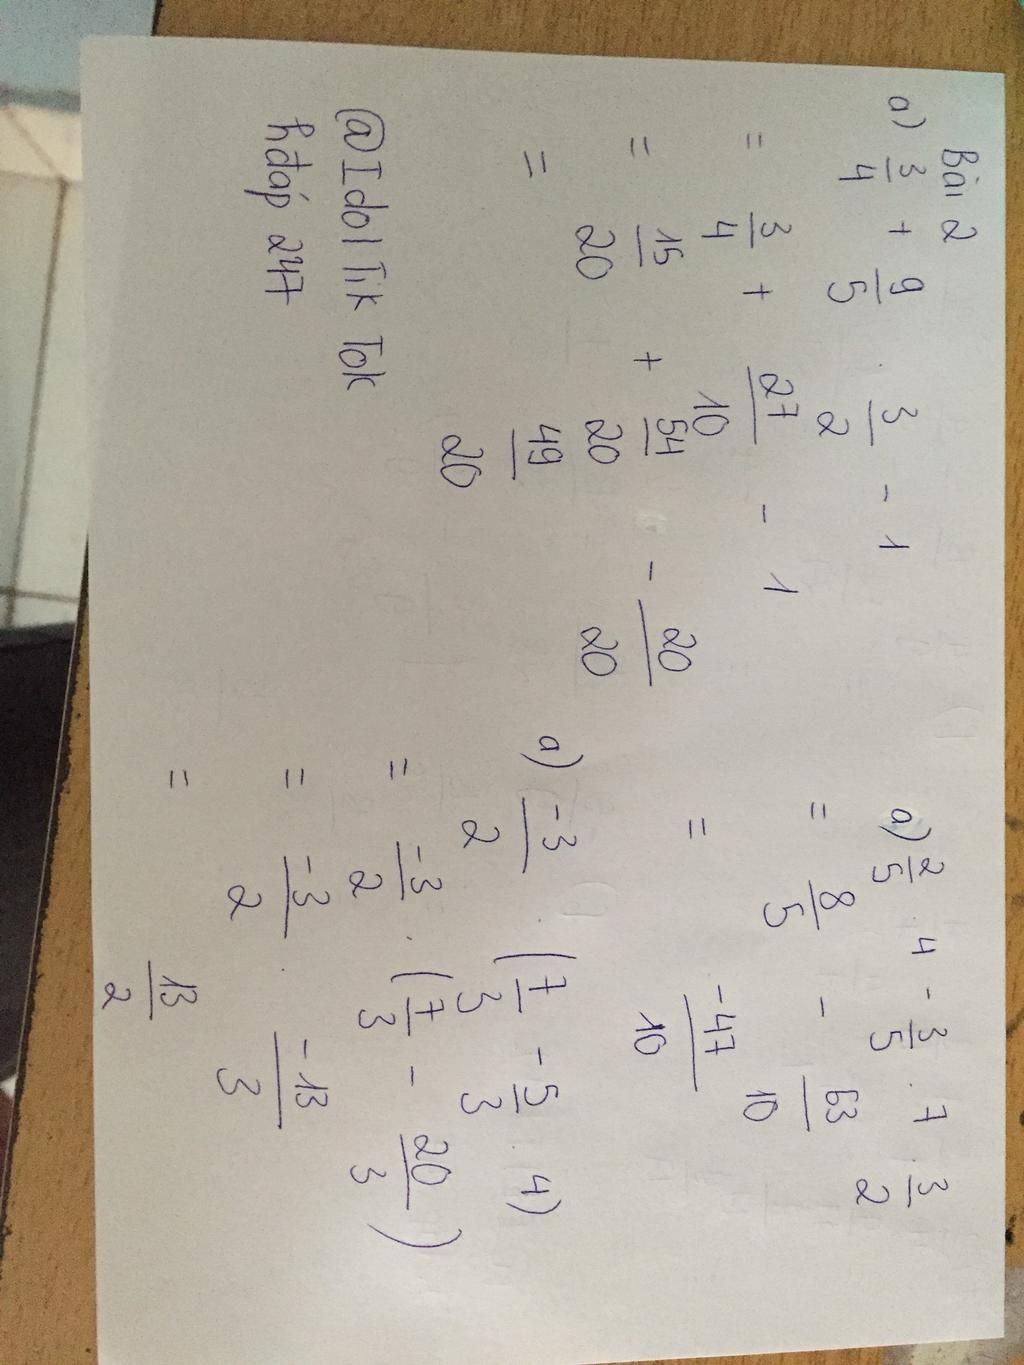 Bài 2
a) 3/4 + 9/5 . 3/2 - 1
= 3/4 + 27/10 - 1
= 15/20 + 54/20 - 20/20
= 49/20
@Idol Tik Tok
hđáp 247
a) 2/5 . 4 - 3/5 . 7 . 3/2
= 8/5 - 63/10
= -47/10
a) -3/2 . (7/3 - 5/3 . 4)
= -3/2 . (7/3 - 20/3)
= -3/2 . -13/3
= 13/2